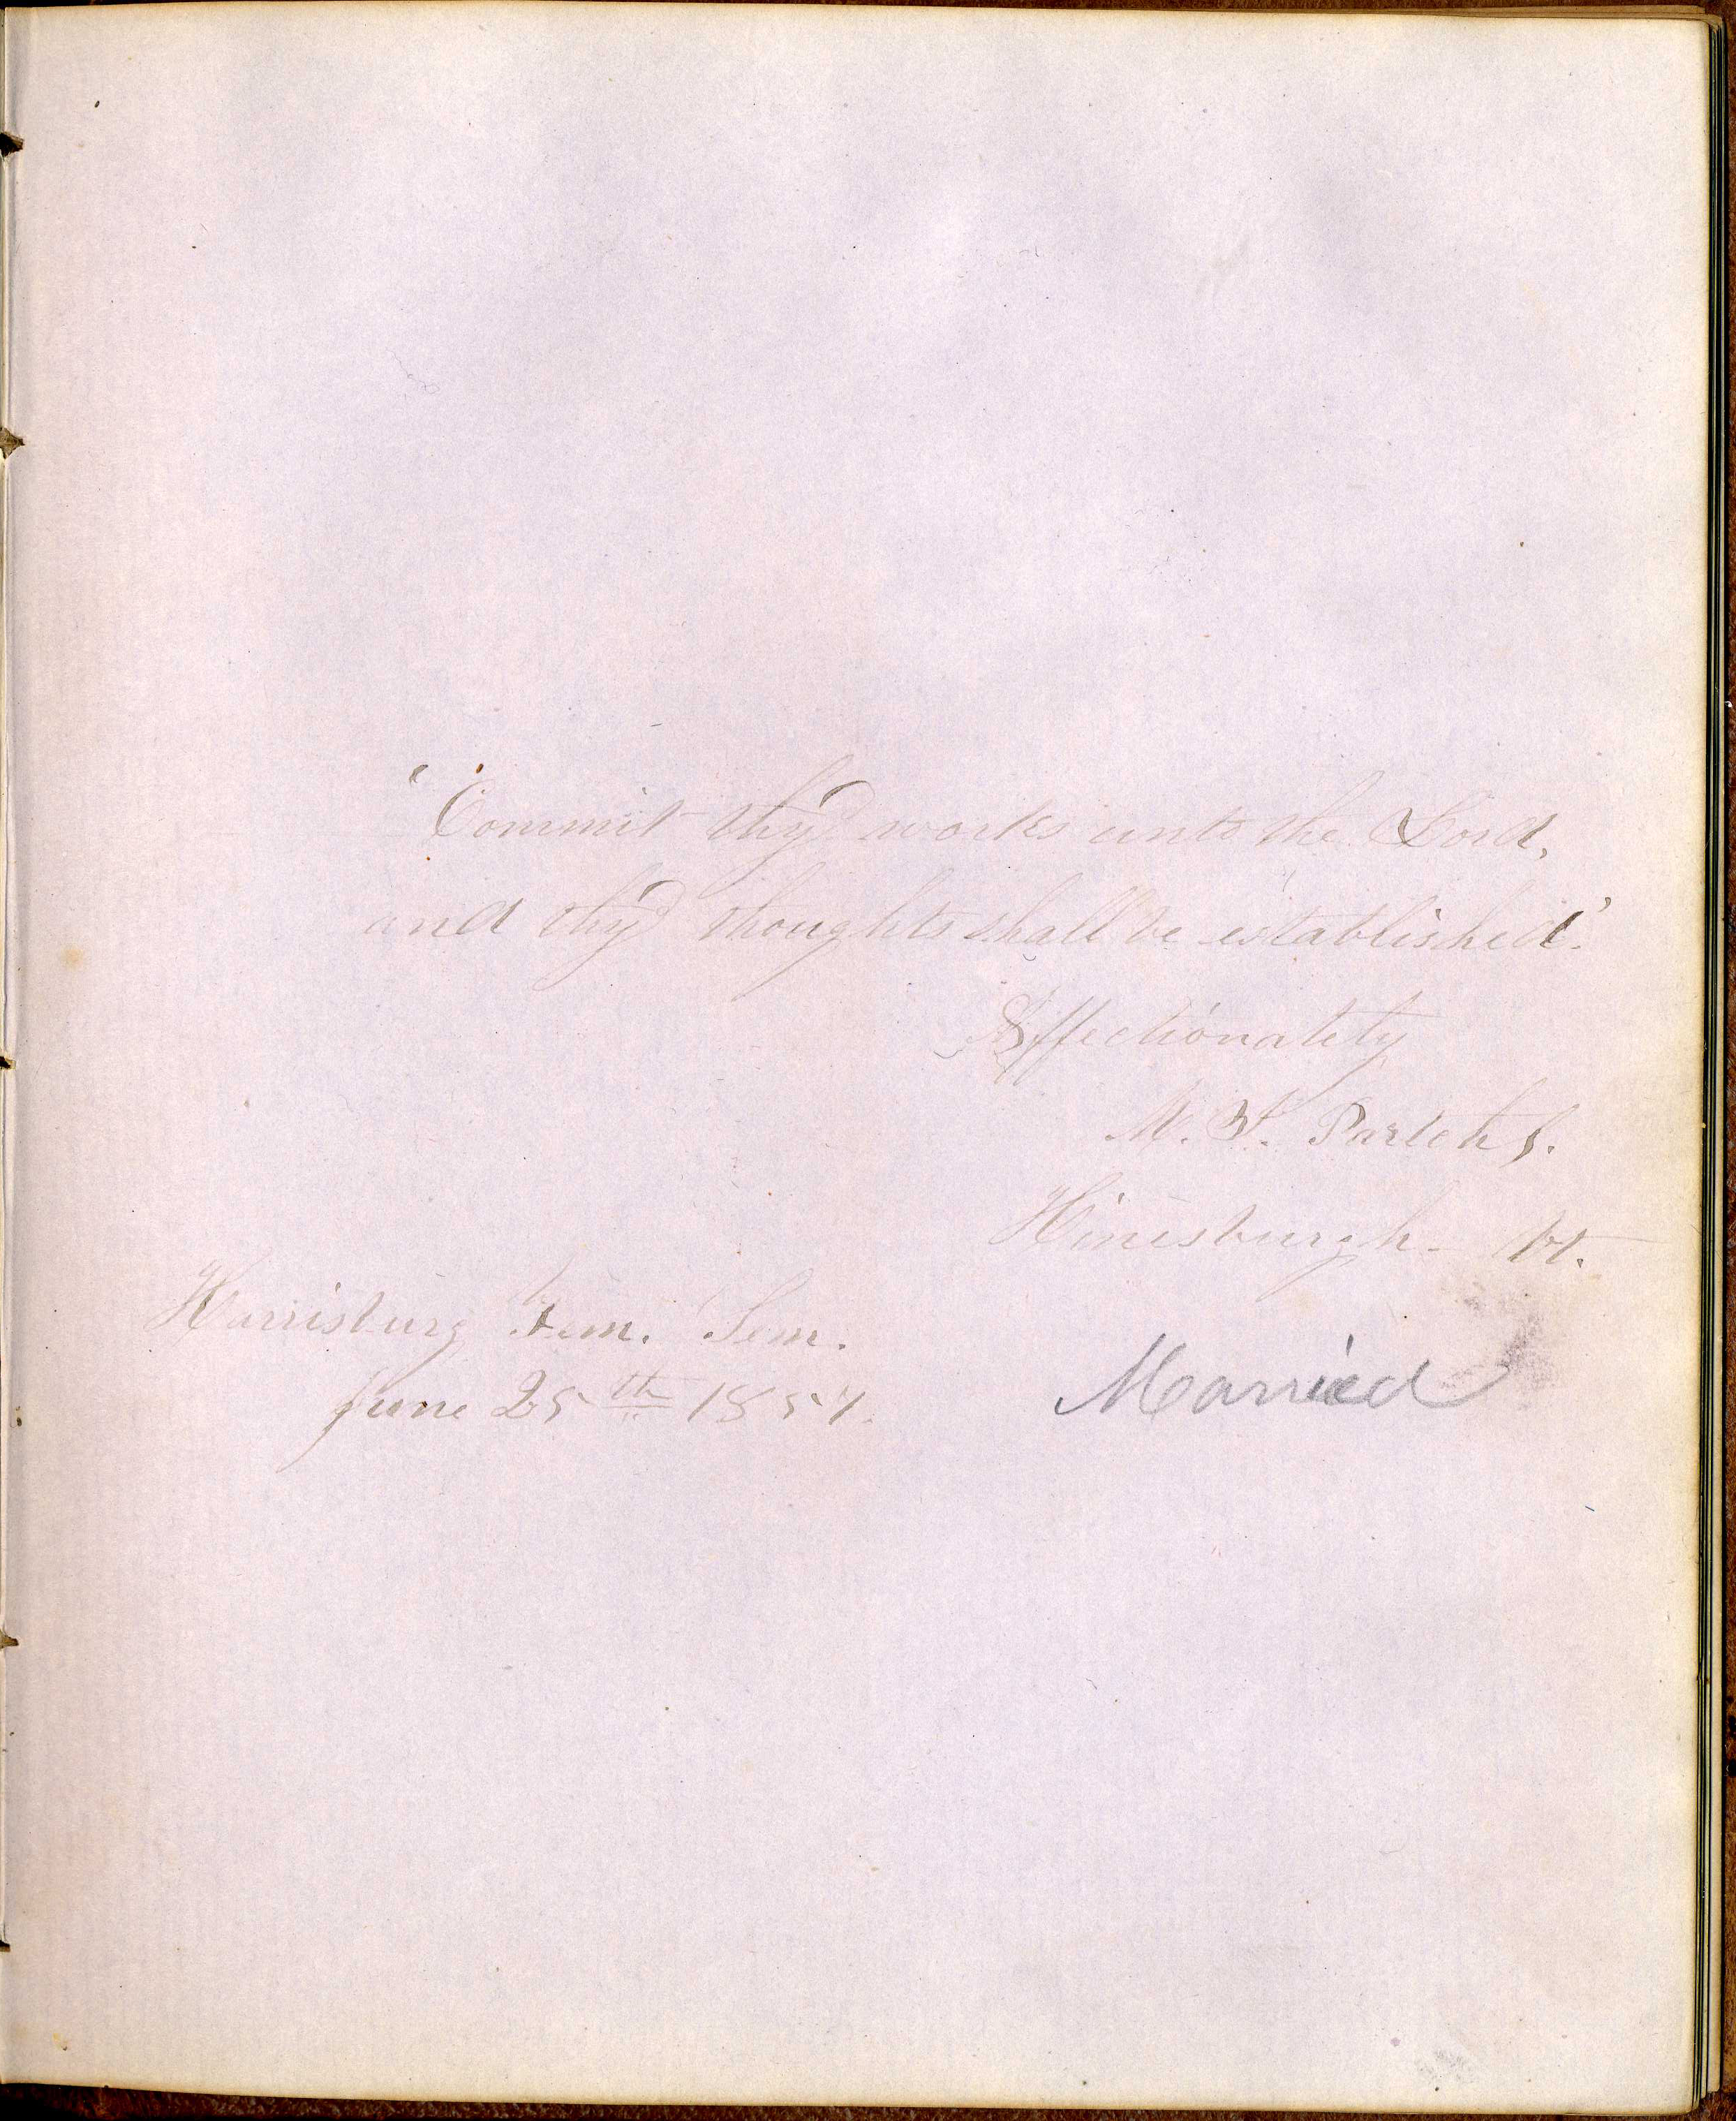 "Commit thy works unto the Lord,
and thy thoughts shall be established."
Affectionately
Hinesburgh - Vt.
Harrisburg Fem. Sem.
June 25th 1857.
Married